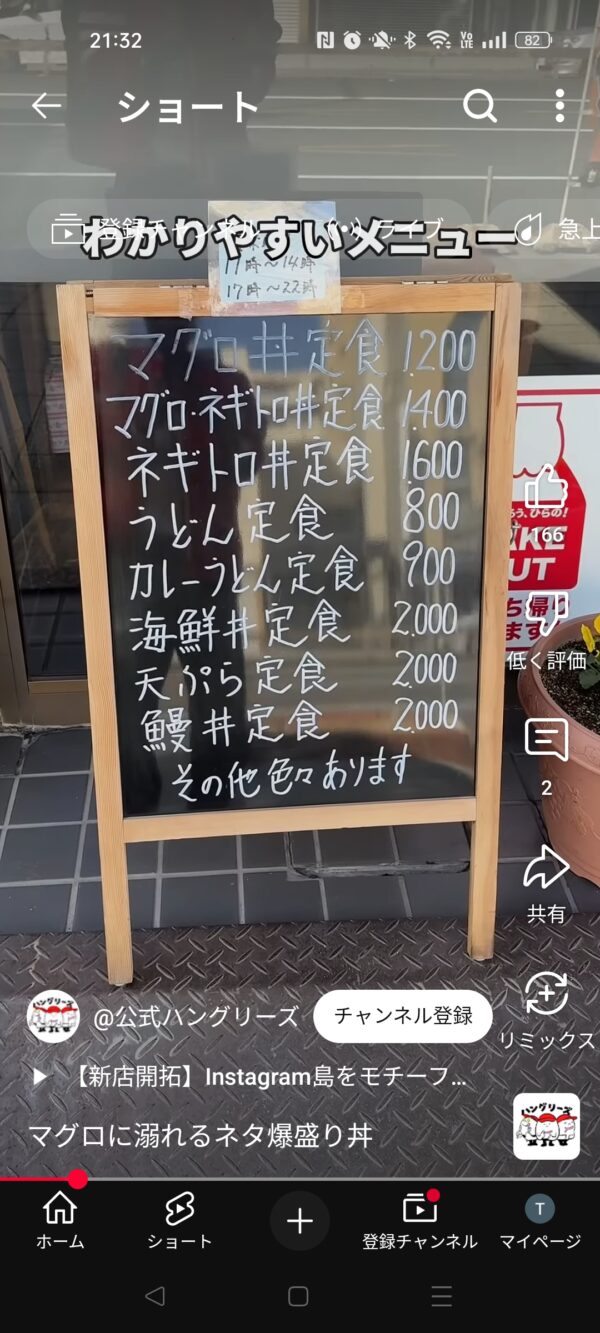 21:32
82
ショート
登録チャンネル
ライブ
急上
わかりやすいメニュー
11時～14時
17時～22時
マグロ丼定食 1.200
マグロ・ネギトロ丼定食 1.400
ネギトロ丼定食 1.600
うどん定食 800
カレーうどん定食 900
海鮮丼定食 2.000
天ぷら定食 2.000
鰻丼定食 2.000
その他色々あります
166
低く評価
2
共有
リミックス
@公式ハングリーズ
チャンネル登録
【新店開拓】Instagram島をモチーフ…
マグロに溺れるネタ爆盛り丼
ハングリーズ
ホーム
ショート
登録チャンネル
マイページ
T